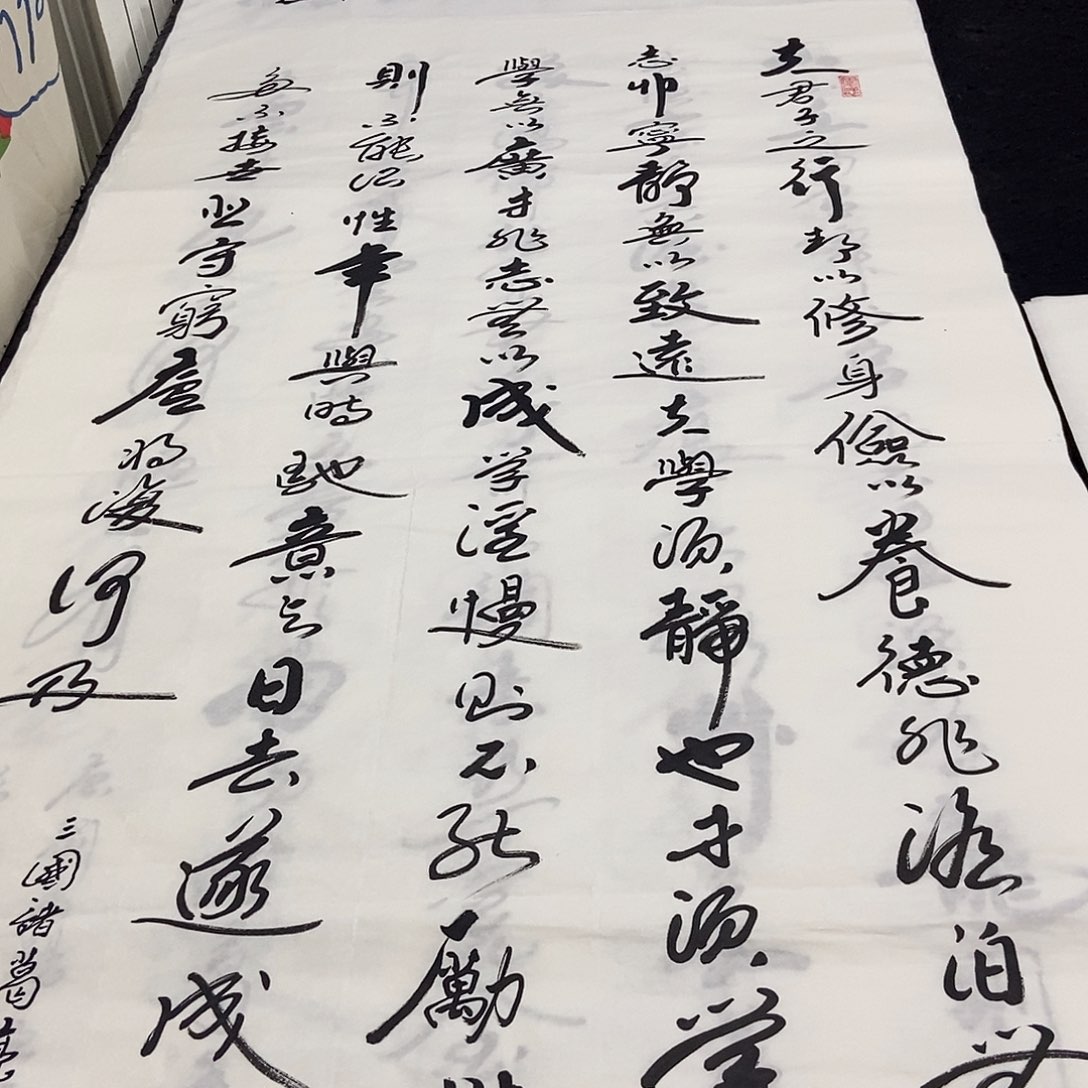 夫君子之行静以修身儉以養德非澹泊無
志非寧静無以致遠夫學須静也才須学
學無以廣才非志無以成学淫慢則不能勵
則不能治性年與時馳意与日去遂成
多不接世悲守窮廬將復何及
三國諸葛亮